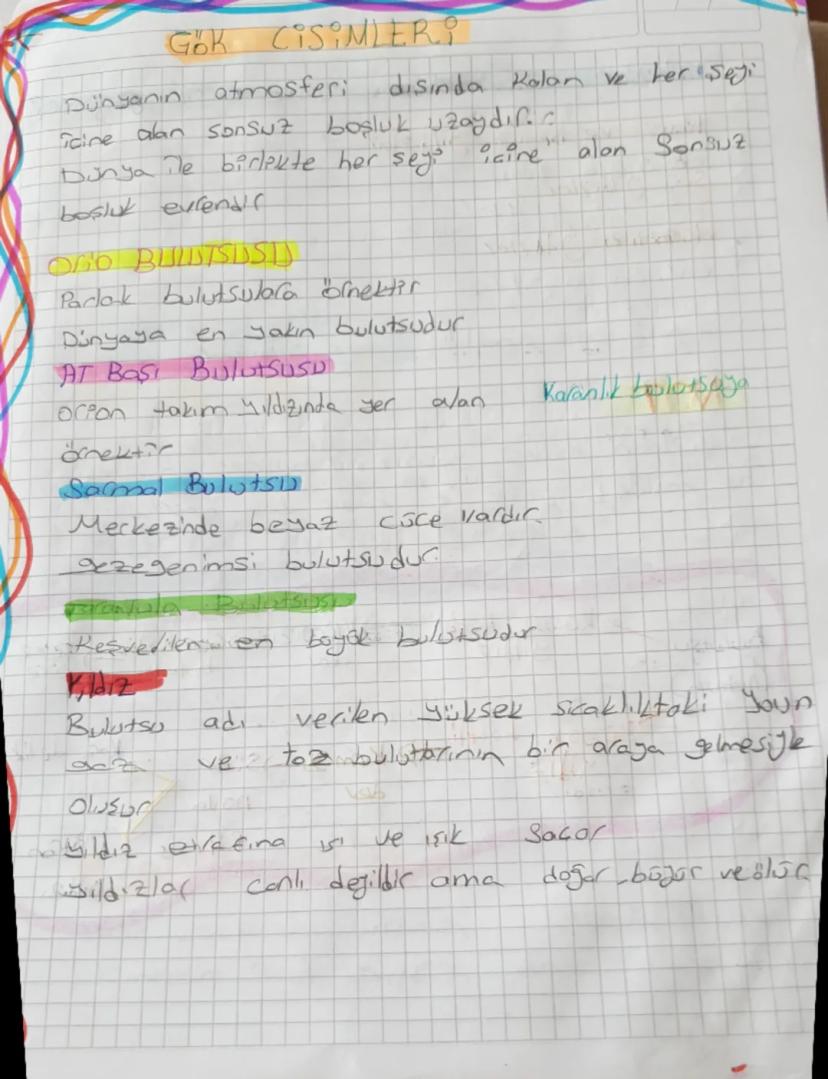 GöK CİSİMLERİ
Dünyanın atmosferi dısında Kalan ve her seyi
icine alan sonsuz boşluk uzaydır.
Dünya ile birlekte her seyi icine alan Sonsuz
boşluk evrendir
BULUTSUSU
Parlak bulutsulara örnektir
Dünyaya en yakın bulutsudur
AT Başı Bulutsusu
takım yıldızında yer alan Karanlık bulutsuya
örnektir
Sarmal Bulutsu
Merkezinde beyaz cüce vardır
gezegenimsi bulutsudur
Bulutsusu
Keşvedilen en büyük bulutsudur
Yıldız
Bulutsu adı verilen yüksek sıcaklıktaki youn
gaz ve toz bulutlarının bir araya gelmesiyle
Oluşur
yıldız etrafına ısı ve ışık Sacar
yıldızlar canlı degildir ama doğar büyür ve ölür